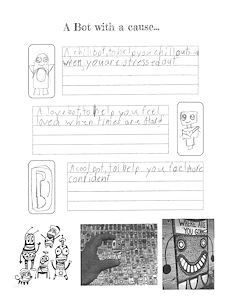 A Bot with a cause...
A chill bot, to help you chill out
when you are stressed out
A love bot, to help you feel
loved when times are hard
A cool bot, to help you feel more
confident
WHERE ARE
YOU GOING